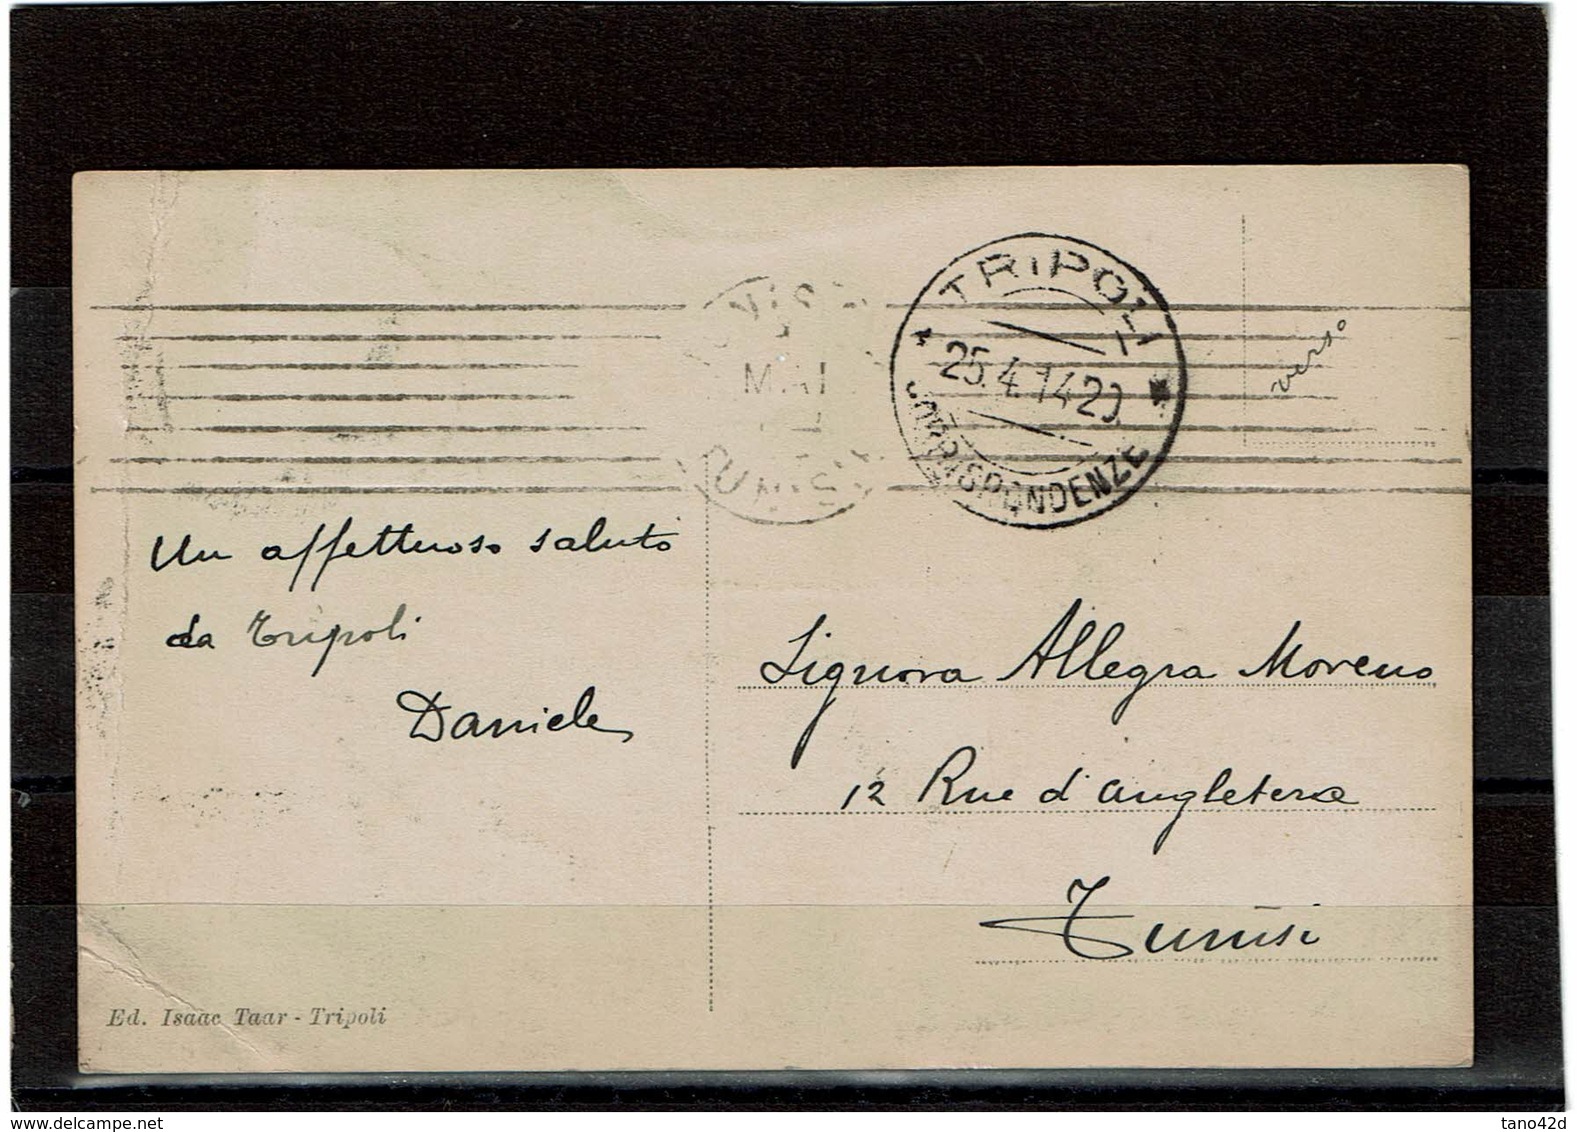 TRIPOLI
25.4.14 20
CORRISPONDENZE
MAI
TUNISIE
verso
Un affettuoso saluto
da Tripoli
Daniele
Signora Allegra Moreno
12 Rue d'angleterre
Tunisi
Ed. Isaac Taar - Tripoli
delcampe.net
tano42d